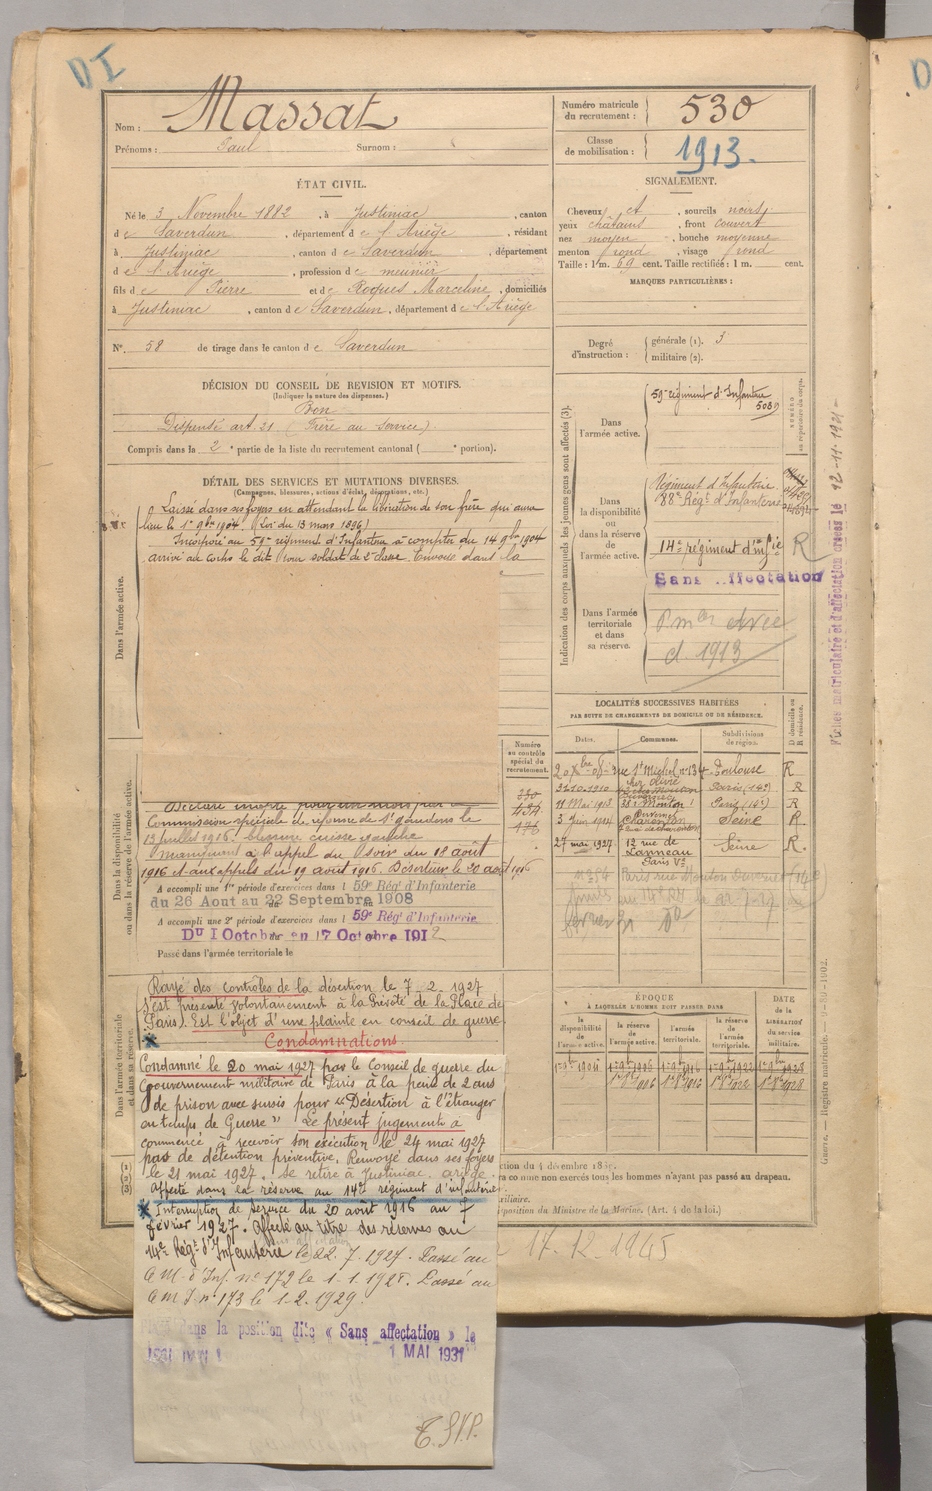 DI
Nom : Massat
Prénoms : Paul Surnom :
Numéro matricule du recrutement : 530
Classe de mobilisation : 1913.
ÉTAT CIVIL.
Né le 3 Novembre 1882, à Justiniac, canton
de Saverdun, département de l'Ariège, résidant
à Justiniac, canton de Saverdun, département
de l'Ariège, profession de meunier
fils de Pierre et de Roques Marceline, domiciliés
à Justiniac, canton de Saverdun, département de l'Ariège
N° 58 de tirage dans le canton de Saverdun
SIGNALEMENT.
Cheveux et, sourcils noirs
yeux châtains, front couvert
nez moyen, bouche moyenne
menton rond, visage rond
Taille : 1 m. 69 cent. Taille rectifiée : 1 m. cent.
MARQUES PARTICULIÈRES :
Degré d'instruction : générale (1). 3
militaire (2).
DÉCISION DU CONSEIL DE REVISION ET MOTIFS.
(Indiquer la nature des dispenses.)
Bon
Dispensé art. 21 (Frère au service)
Compris dans la 2e partie de la liste du recrutement cantonal ( e portion).
DÉTAIL DES SERVICES ET MUTATIONS DIVERSES.
(Campagnes, blessures, actions d'éclat, décorations, etc.)
Dans l'armée active.
Laissé dans ses foyers en attendant la libération de son frère qui aura
lieu le 1er 9bre 1904. (Loi du 13 mars 1896)
Incorporé au 59e régiment d'Infanterie à compter du 14 9bre 1904
arrivé au corps le dit jour soldat de 2e classe. Envoyé dans la
Numéro au contrôle spécial du recrutement.
Dans la disponibilité ou dans la réserve de l'armée active.
Déclaré inapte pour un mois par la
Commission spéciale de réforme de St Gaudens le
13 juillet 1916. blessure cuisse gauche
Manquant à l'appel du soir du 18 août
1916 et aux appels du 19 août 1916. Déserteur le 20 août 1916
A accompli une 1re période d'exercices dans l 59e Rég' d'Infanterie
du 26 Aout au 22 Septembre 1908
A accompli une 2e période d'exercices dans l 59e Rég' d'Infanterie
Du 1 Octobre au 17 Octobre 1912
Passé dans l'armée territoriale le
Dans l'armée territoriale et dans sa réserve.
Rayé des contrôles de la désertion le 7-2-1927
(S'est présenté volontairement à la Prévôté de la Place de
Paris). Est l'objet d'une plainte en conseil de guerre
Condamnations
Condamné le 20 mai 1927 par le Conseil de guerre du
Gouvernement militaire de Paris à la peine de 2 ans
de prison avec sursis pour "Désertion à l'étranger
en temps de Guerre" Le présent jugement a
commencé à recevoir son exécution le 24 mai 1927
pas de détention préventive. Renvoyé dans ses foyers
le 21 mai 1927. Se retire à Justiniac, ariège
affecté dans la réserve au 14e régiment d'infanterie
Interruption de service du 20 août 1916 au 7
février 1927. affecté au titre des réserves au
14e Rég' d'Infanterie le 22.7.1927. Passé au
C.M. d'Inf. n° 172 le 1-1-1928. Passé au
C M I n° 173 le 1-2-1929.
dans la position dite « Sans affectation » le
1 MAI 1931
T.S.V.P.
Indication des corps auxquels les jeunes gens sont affectés (3).
Dans l'armée active.
59e régiment d'Infanterie
5039
Dans la disponibilité ou dans la réserve de l'armée active.
Régiment d'Infanterie
88e Régt d'Infanterie
14e régiment d'infie R
Sans affectation
Dans l'armée territoriale et dans sa réserve.
cl. 1913
NUMÉRO au répertoire du corps.
LOCALITÉS SUCCESSIVES HABITÉES
PAR SUITE DE CHANGEMENTS DE DOMICILE OU DE RÉSIDENCE.
Dates. Communes. Subdivisions de région. D domicile ou R résidence.
rue St Michel n° 134 Toulouse R
Paris (14e) R
11 Mai 1913 Paris (14e) R
3 Juin 1914 Charenton Seine R
27 mai 1927 12 rue de Lanneau Paris Ve Seine R
ÉPOQUE
À LAQUELLE L'HOMME DOIT PASSER DANS
la disponibilité de l'armée active. la réserve de l'armée active. l'armée territoriale. la réserve de l'armée territoriale. DATE de la LIBÉRATION du service militaire.
ction du 4 décembre 18
ra comme non exercés tous les hommes n'ayant pas passé au drapeau.
xiliaire.
sposition du Ministre de la Marine. (Art. 4 de la loi.)
17.12.1945
Fiches matriculaire et d'affectation créées le 12-11-1921-
Guerre. — Registre matricule. — 9-80-1902.